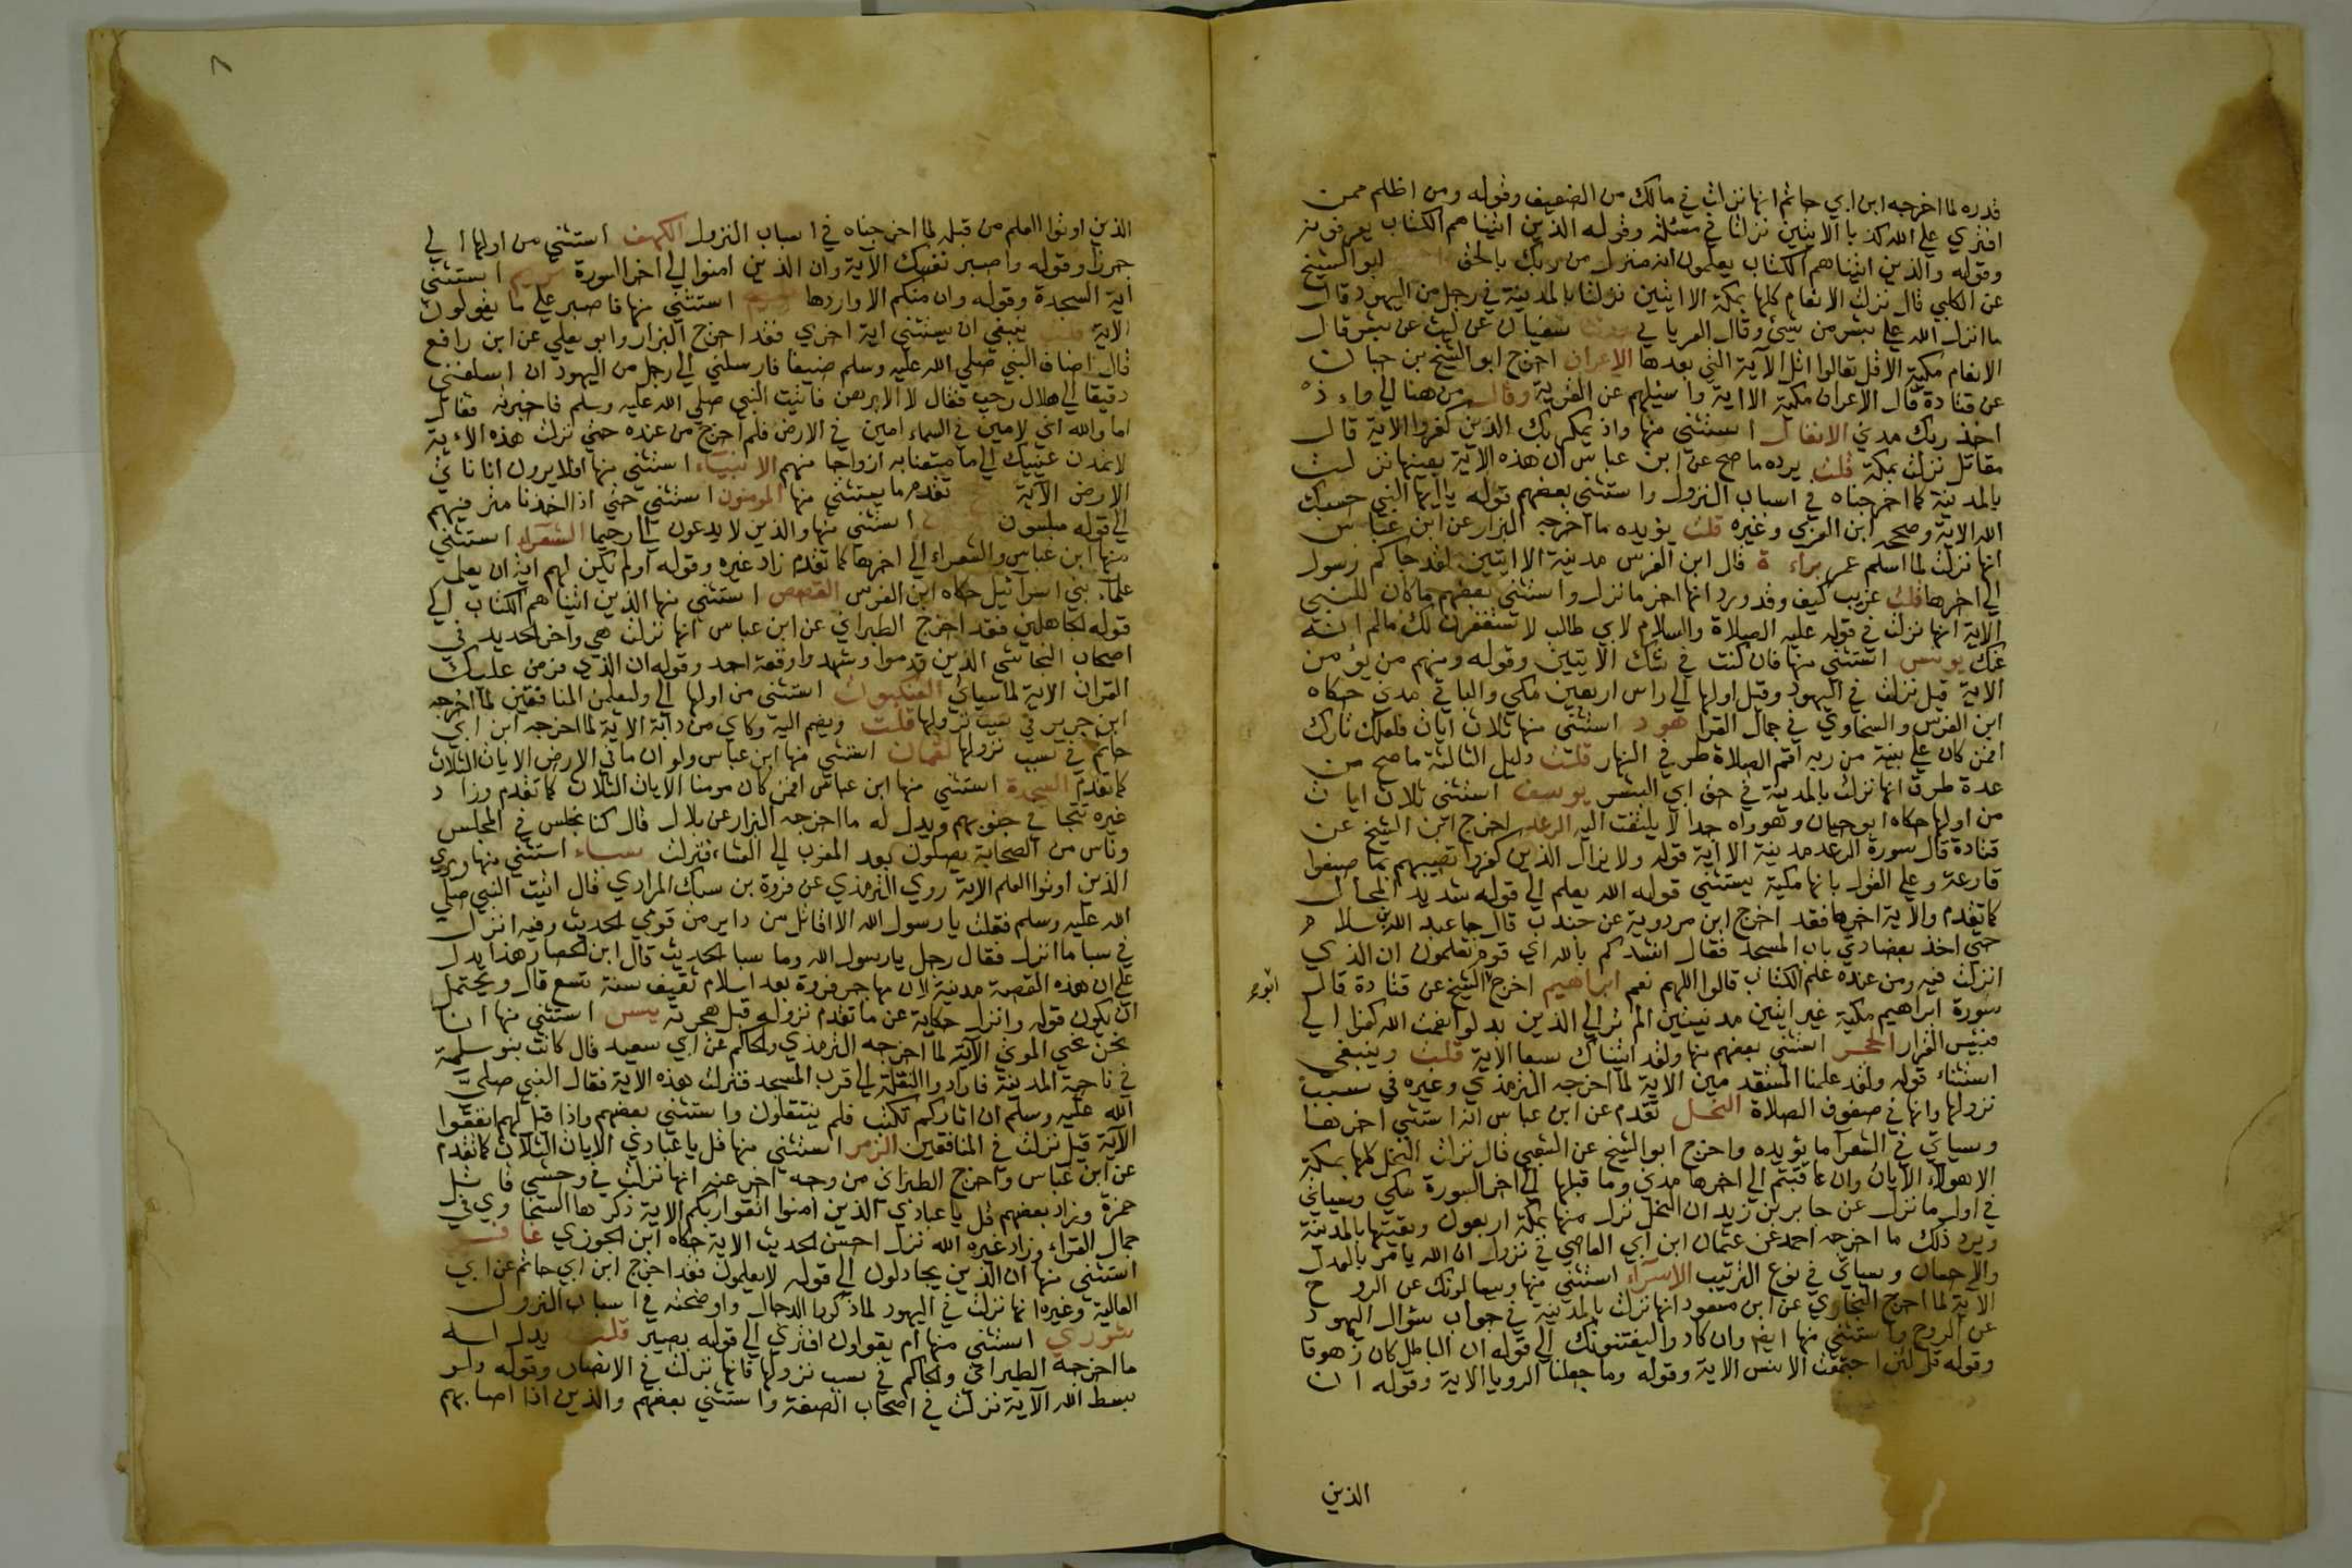 قدره لما اخرجه ابن ابي حاتم انها نزلت في مالك من الضيف وقوله ومن اظلم ممن
افتري علي الله كذبا الايتين نزلتا في مسيلمة وقوله الذين اتيناهم الكتاب يعرفونه
وقوله والذين اتيناهم الكتاب يعلمون انه منزل من ربك بالحق ابو الشيخ
عن الكلبي قال نزلت الانعام كلها بمكة الا ايتين نزلتا بالمدينة في رجل من اليهود قال
ما انزل الله علي بشر من شئ وقال الفريابي سفيان عن ليث عن بشر قال
الانعام مكية الا قل تعالوا اتل الآية التي بعدها الاعراف اخرج ابو الشيخ بن حبان
عن قتادة قال الاعراف مكية الا اية واسئلهم عن القرية وقال من هنا الي واذ
اخذ ربك مدني الانفال استثني منها واذ يمكر بك الذين كفروا الاية قال
مقاتل نزلت بمكة قلت يرده ما صح عن ابن عباس ان هذه الاية بعينها نزلت
بالمدينة كما اخرجناه في اسباب النزول واستثني بعضهم قوله ياايها النبي حسبك
الله الاية وصححه ابن العربي وغيره قلت يؤيده ما اخرجه البزار عن ابن عباس
انها نزلت لما اسلم عمر براءة قال ابن الفرس مدنية الا ايتين لقد جاكم رسول
الي اخرها قلت غريب كيف وقد ورد انها اخر ما نزل واستثني بعضهم ما كان للنبي
الاية انها نزلت في قوله عليه الصلاة والسلام لابي طالب لاستغفرن لك مالم انه
عنك يونس استثني منها فان كنت في شك الايتين وقوله ومنهم من يؤمن
الاية قيل نزلت في اليهود وقيل اولها الي راس اربعين مكي والباقي مدني حكاه
ابن الفرس والسخاوي في جمال القرا هود استثني منها ثلاث ايات فلعلك تارك
افمن كان علي بينة من ربه اقم الصلاة طرفي النهار قلت دليل الثالثة ما صح من
عدة طرق انها نزلت بالمدينة في حق ابي اليسر يوسف استثني ثلاث ايات
من اولها حكاه ابو حيان وهو واه جدا لا يلتفت اليه الرعد اخرج ابن الشيخ عن
قتادة قال سورة الرعد مدنية الا اية قوله ولا يزال الذين كفروا تصيبهم بما صنعوا
قارعة وعلي القول بانها مكية يستثني قوله الله يعلم الي قوله شديد المحال
كما تقدم والاية اخرها فقد اخرج ابن مردوية عن جندب قال جا عبد الله بن سلام
حتي اخذ بعضادتي باب المسجد فقال انشدكم بالله اي قوم تعلمون ان الذي
انزلت فيه ومن عنده علم الكتاب قالوا اللهم نعم ابراهيم اخرج ابو الشيخ عن قتادة قال
سورة ابراهيم مكية غير ايتين مدنيتين الم تر الي الذين بدلوا نعمت الله كفرا الي
فبئس القرار الحجر استثني بعضهم منها ولقد اتيناك سبعا الاية قلت وينبغي
استثناء قوله ولقد علمنا المستقدمين الاية لما اخرجه الترمذي وغيره في سبب
نزولها وانها في صفوف الصلاة النحل تقدم عن ابن عباس انه استثني اخرها
وسياتي في الشعرا ما يؤيده واخرج ابو الشيخ عن الشعبي قال نزلت النحل كلها بمكة
الا هولاء الايات وان عاقبتم الي اخرها مدني وما قبلها الي اخر السورة مكي وسياتي
في اول ما نزل عن جابر بن زيد ان النحل نزل منها بمكة اربعون وبقيتها بالمدينة
ويرد ذلك ما اخرجه احمد عن عثمان ابن ابي العاصي في نزول ان الله يامر بالعدل
والاحسان وسياتي في نوع الترتيب الاسرآء استثني منها ويسالونك عن الروح
الاية لما اخرج البخاري عن ابن مسعود انها نزلت بالمدينة في جواب سؤال اليهود
عن الروح واستثني منها ايضا وان كادوا ليفتنونك الي قوله ان الباطل كان زهوقا
وقوله قل لئن اجتمعت الانس الاية وقوله وما جعلنا الرويا الاية وقوله ان
الذين
الذين اوتوا العلم من قبله لما اخرجناه في اسباب النزول الكهف استثني من اولها الي
جرزا وقوله واصبر نفسك الآية وان الذين امنوا الي اخر السورة مريم استثني
اية السجدة وقوله وان منكم الا واردها استثني منها فاصبر علي ما يقولون
الاية قلت ينبغي ان يستثني اية اخري فقد اخرج البزار وابو يعلي عن ابن رافع
قال اضاف النبي صلي الله عليه وسلم ضيفا فارسلني الي رجل من اليهود ان اسلفني
دقيقا الي هلال رجب فقال لا الا برهن فاتيت النبي صلي الله عليه وسلم فاخبرته فقال
اما والله اني لامين في السماء امين في الارض فلم اخرج من عنده حتي نزلت هذه الاءية
لا تمدن عينيك الي ما متعنا به ازواجا منهم الانبياء استثني منها افلا يرون انا ناتي
الارض الآية تقدم ما يستثني منها المومنون استثني حتي اذا اخذنا مترفيهم
الي قوله مبلسون استثني منها والذين لا يدعون الي رحيما الشعرآء استثني
منها ابن عباس والشعراء الي اخرها كما تقدم زاد غيره وقوله اولم يكن لهم اية ان يعلمه
علمآء بني اسرآئيل حكاه ابن الفرس القصص استثني منها الذين اتيناهم الكتاب الي
قوله الجاهلين فقد اخرج الطبراني عن ابن عباس انها نزلت هي واخر الحديد في
اصحاب النجاشي الذين قدموا وشهدوا وقعة احد وقوله ان الذي فرض عليك
القران الاية لما سياتي العنكبوت استثني من اولها الي وليعلمن المنافقين لما اخرجه
ابن جرير في سبب نزولها قلت ويضم اليه وكاي من دابة الاية لما اخرجه ابن ابي
حاتم في سبب نزولها لقمان استثني منها ابن عباس ولو ان ما في الارض الايات الثلاث
كما تقدم السجدة استثني منها ابن عباس افمن كان مومنا الايات الثلاث كما تقدم وزاد
غيره تتجافي جنوبهم ويدل له ما اخرجه البزار عن بلال قال كنا نجلس في المجلس
وناس من الصحابة يصلون بعد المغرب الي العشاء فنزلت سباء استثني منها ويري
الذين اوتوا العلم الاية روي الترمذي عن فروة بن سبك المرادي قال اتيت النبي صلي
الله عليه وسلم فقلت يا رسول الله الا اقاتل من داير من قومي الحديث وفيه انزل
في سبا ما انزل فقال رجل يارسول الله وما سبا الحديث قال ابن الحصار هذا يدل
علي ان هذه القصة مدنية لان مهاجر فروة بعد اسلام ثقيف سنة تسع قال ويحتمل
ان يكون قوله وانزل حكاية عن ما تقدم نزوله قبل هجرته يس استثني منها انا
نحن نحيي الموتي الآية لما اخرجه الترمذي والحاكم عن ابي سعيد قال كانت بنو سلمة
في ناحية المدينة فارادوا النقلة الي قرب المسجد فنزلت هذه الاية فقال النبي صلي
الله عليه وسلم ان اثاركم تكتب فلم ينتقلون واستثني بعضهم واذا قيل لهم انفقوا
الآية قيل نزلت في المنافقين الزمر استثني منها قل يا عبادي الايات الثلاث كما تقدم
عن ابن عباس واخرج الطبراني من وجه اخر عنه انها نزلت في وحشي قاتل
حمزة وزاد بعضهم قل يا عبادي الذين امنوا اتقوا ربكم الاية ذكرها السخاوي في
جمال القراء وزاد غيره الله نزل احسن الحديث الاية حكاه ابن الجوزي غافر
استثني منها ان الذين يجادلون الي قوله لا يعلمون فقد اخرج ابن ابي حاتم عن ابي
العالية وغيره انها نزلت في اليهود لما ذكروا الدجال واوضحته في اسباب النزول
شوري استثني منها ام يقولون افتري الي قوله بصير قلت يدل له
ما اخرجه الطبراني والحاكم في سبب نزولها فانها نزلت في الانصار وقوله ولو
بسط الله الآية نزلت في اصحاب الصفة واستثني بعضهم والذين اذا اصابهم